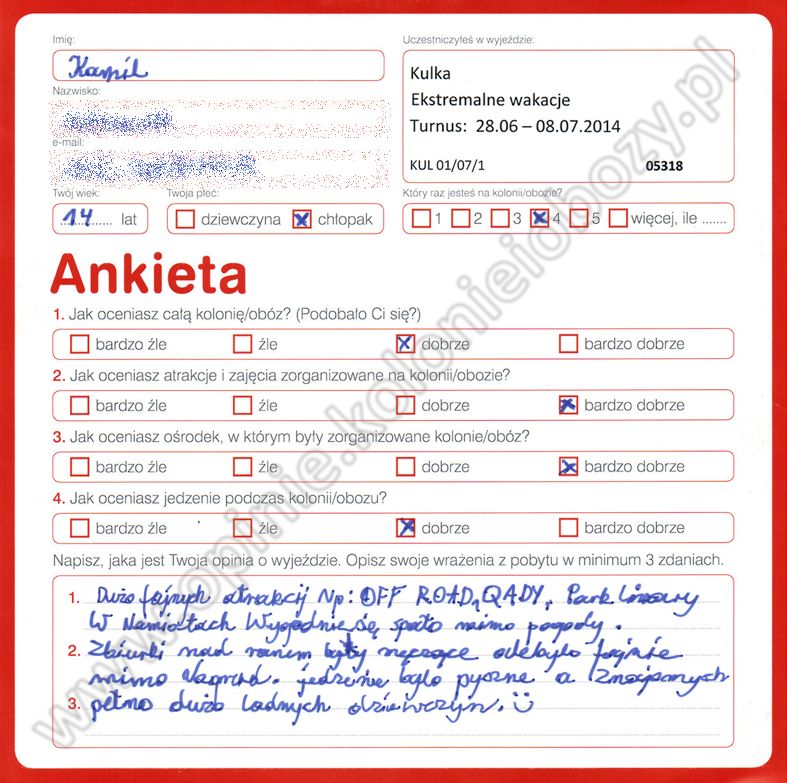 Imię:
Uczestniczyłeś w wyjeździe:
Kamil
Kulka
Ekstremalne wakacje
Turnus: 28.06 – 08.07.2014
KUL 01/07/1 05318
Nazwisko:
e-mail:
Twój wiek:
Twoja płeć:
Który raz jesteś na kolonii/obozie?
14 lat
dziewczyna chłopak
1 2 3 4 5 więcej, ile .......
Ankieta
1. Jak oceniasz całą kolonię/obóz? (Podobało Ci się?)
bardzo źle źle dobrze bardzo dobrze
2. Jak oceniasz atrakcje i zajęcia zorganizowane na kolonii/obozie?
bardzo źle źle dobrze bardzo dobrze
3. Jak oceniasz ośrodek, w którym były zorganizowane kolonie/obóz?
bardzo źle źle dobrze bardzo dobrze
4. Jak oceniasz jedzenie podczas kolonii/obozu?
bardzo źle źle dobrze bardzo dobrze
Napisz, jaka jest Twoja opinia o wyjeździe. Opisz swoje wrażenia z pobytu w minimum 3 zdaniach.
1. Dużo fajnych atrakcij Np: OFF ROAD, QADY, Park Linowy
W Namiotach Wygodnie się spało mimo pogody.
2. Zbiurki nad ranem były męczące ale było fajnie
mimo jedzenie było pyszne a Znajomych
3. pełno dużo ladnych dziewczyn.
www.opinie.kolonieiobozy.pl